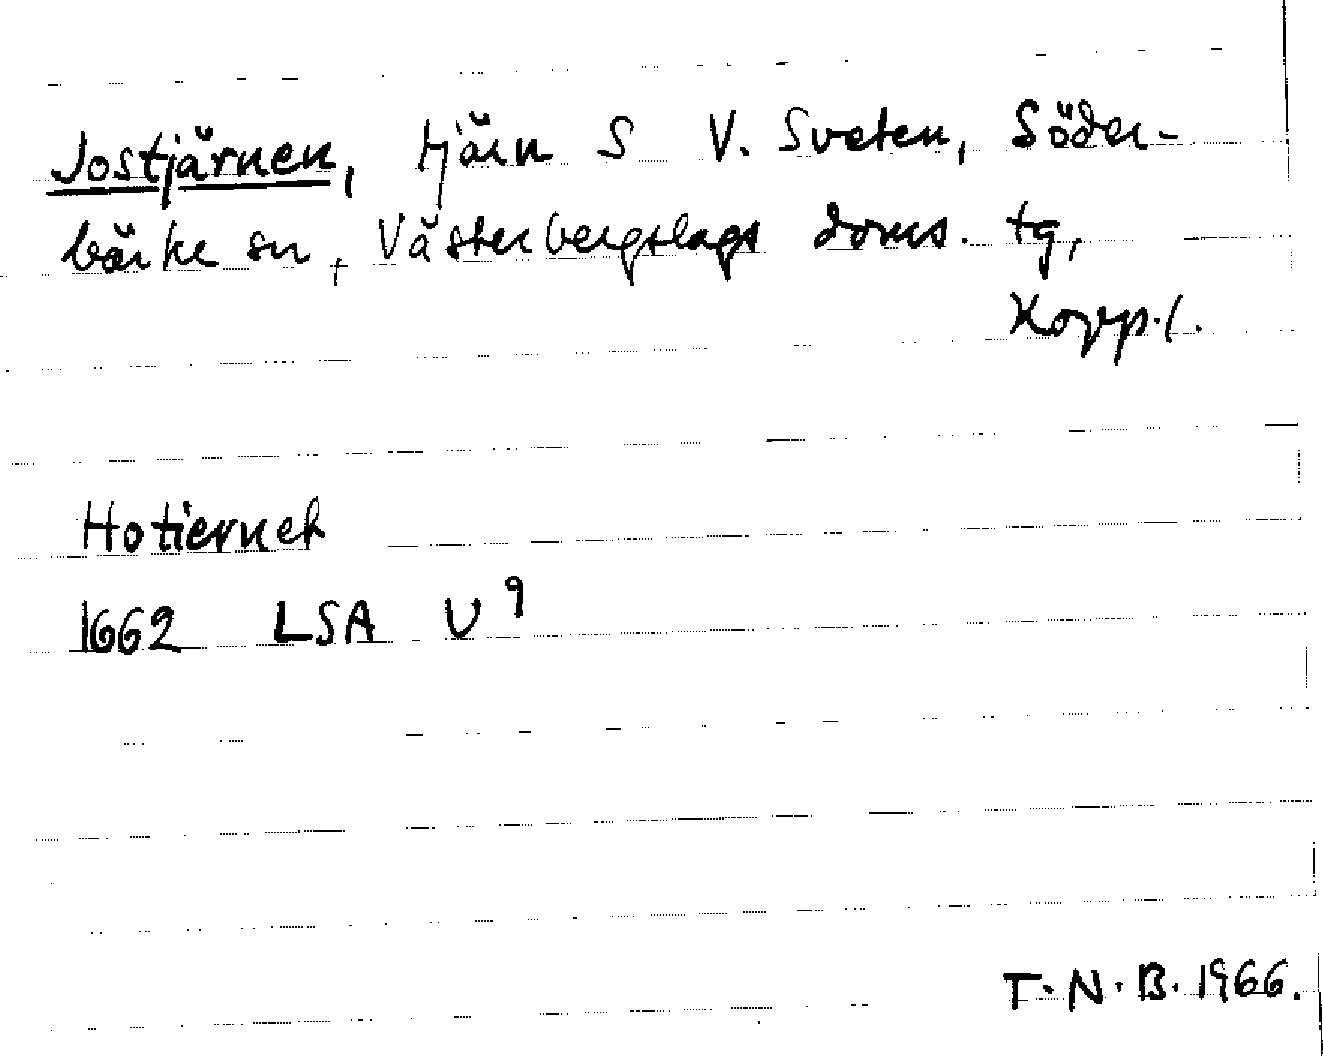 Jostjärnen, tjärn S V. Sveten, Söder-
bärke sn, Västerbergslags doms. tg,
Kopp. l.
Hotierneh
1662 LSA U9
T. N. B. 1966.